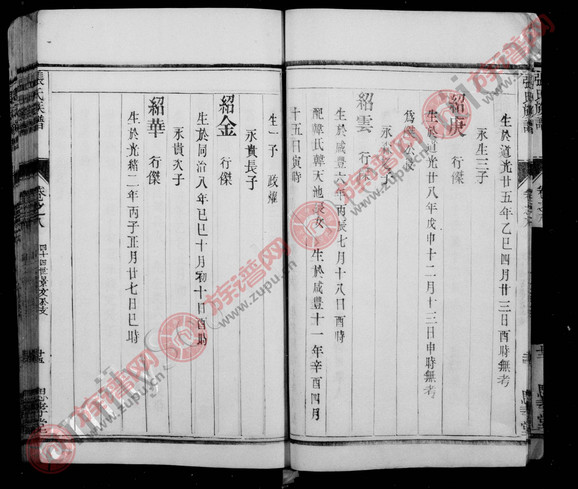 生於道光廿五年乙巳四月廿三日酉時無考
永生三子
紹庚 行傑
生於道光廿八年戊申十二月十三日申時無考
紹雲 行傑
生於咸豐六年丙辰七月十八日酉時
配韓氏韓天池 女 生於咸豐十一年辛酉四月
十五日寅時
生一子 政燿
永貴長子
紹金 行傑
生於同治八年己巳十月初十日酉時
永貴次子
紹華 行傑
生於光緒二年丙子正月廿七日巳時
張氏族譜
思孝堂
族谱网
www.zupu.cn